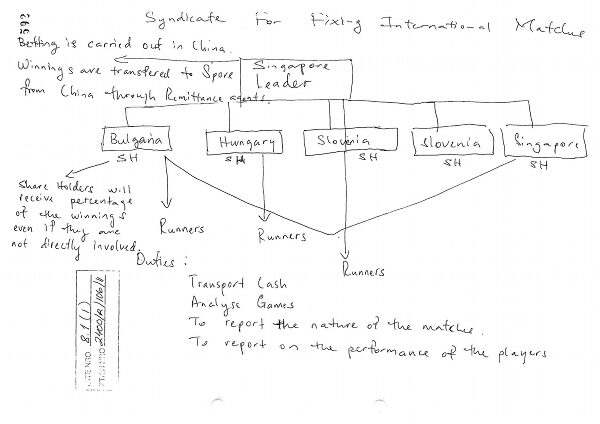 Syndicate For Fixing International Matches
2592
Betting is carried out in China.
Winnings are transfered to Spore
from China through Remittance agents.
Singapore
Leader
Bulgaria
Hungary
Slovenia
Slovenia
Singapore
SH
SH
SH
SH
SH
Share Holders will
receive percentage
of the winnings
even if they are
not directly involved.
Runners
Runners
Runners
Duties :
Transport Cash
Analyse Games
To report the nature of the matches.
To report on the performance of the players
8.1(1)
2400/R/106/